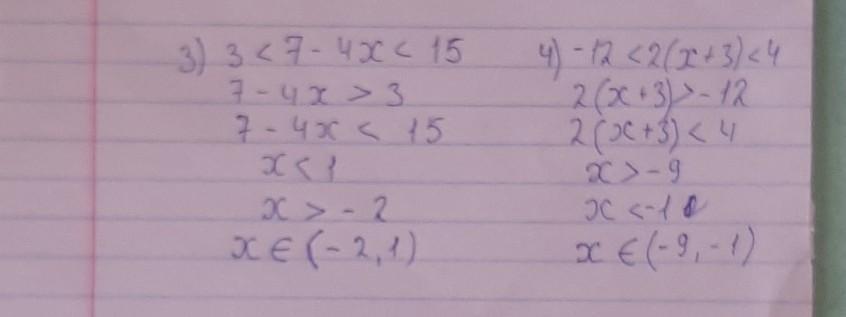 3) 3 < 7 - 4x < 15
7 - 4x > 3
7 - 4x < 15
x < 1
x > - 2
x ∈ (- 2, 1)
4) -12 < 2(x+3) < 4
2(x+3) > - 12
2(x+3) < 4
x > - 9
x < -1
x ∈ (- 9, - 1)